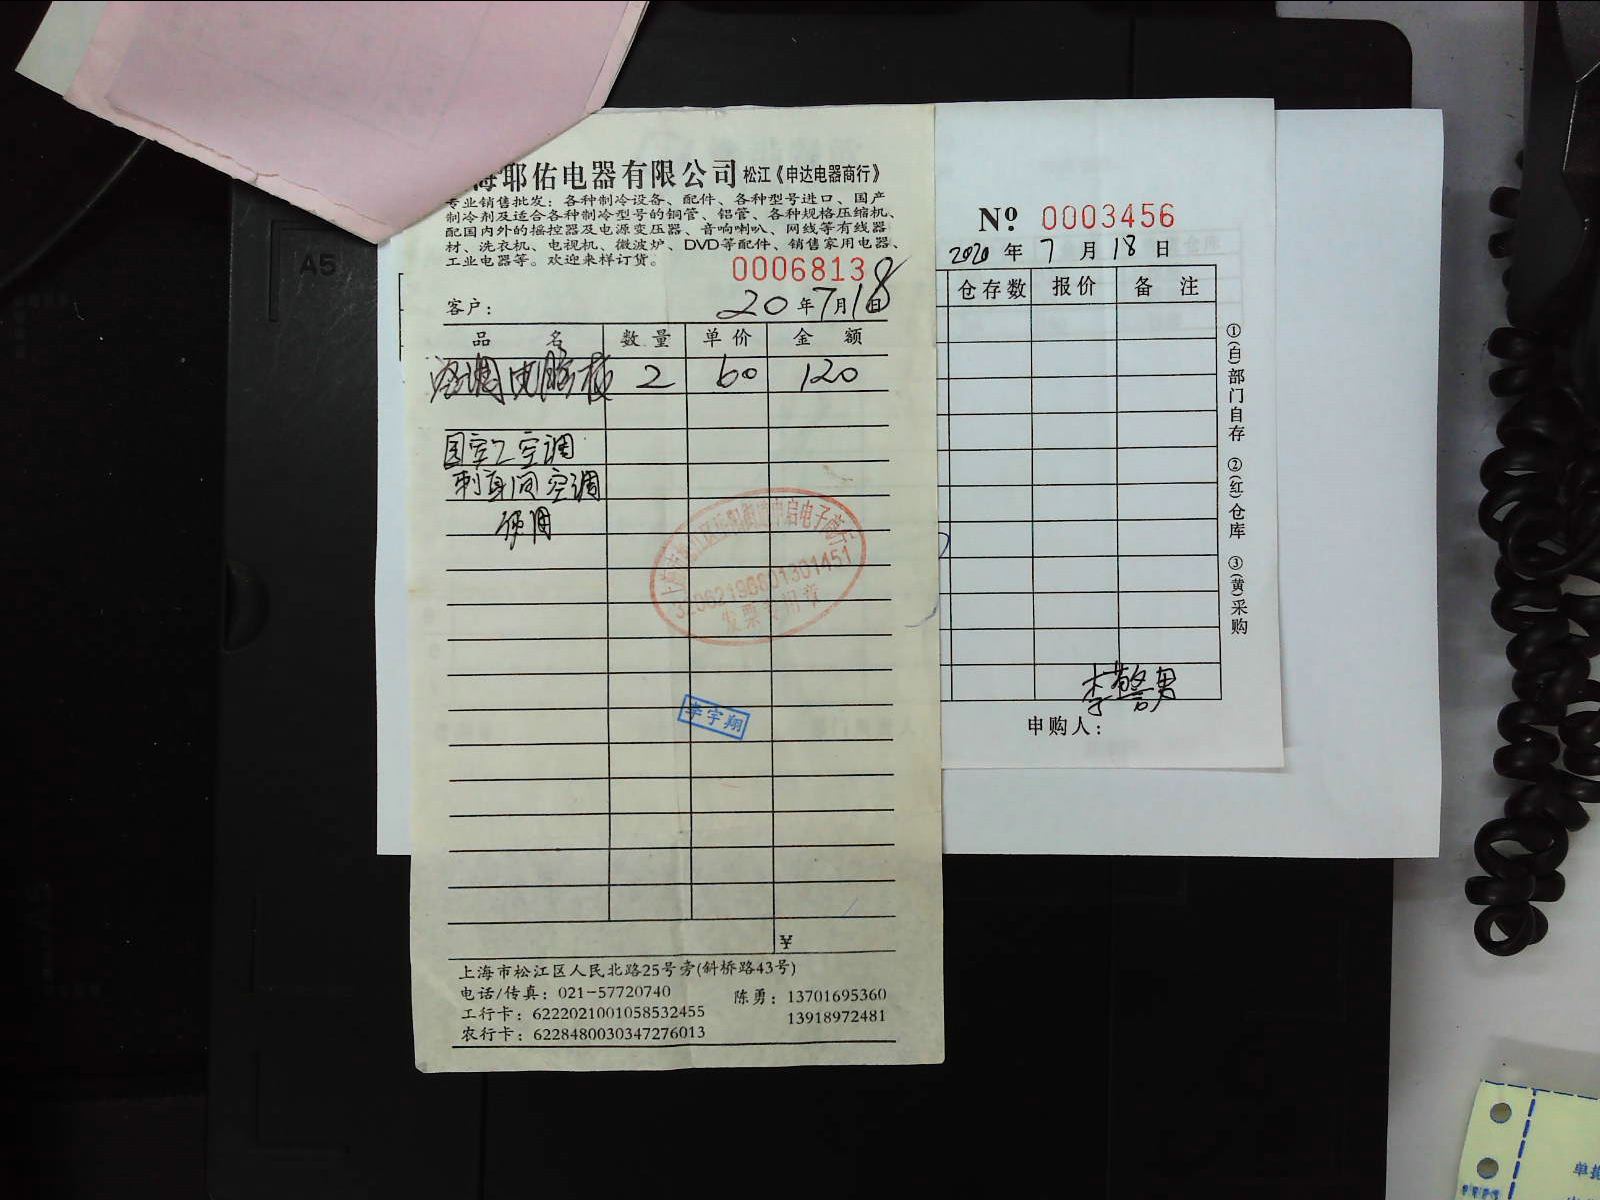 海耶佑电器有限公司 松江《申达电器商行》
专业销售批发：各种制冷设备、配件、各种型号进口、国产
制冷剂及适合各种制冷型号的铜管、铝管、各种规格压缩机、
配国内外的摇控器及电源变压器、音响喇叭、网线等有线器
材、洗衣机、电视机、微波炉、DVD等配件、销售家用电器、
工业电器等。欢迎来样订货。
0006813
客户： 20年7月18日
品 名 数量 单价 金 额
空调电脑板 2 60 120
空调
刺身间空调
使用
32062196801301451
发票专用章
李宇翔
¥
上海市松江区人民北路25号旁(斜桥路43号)
电话/传真：021-57720740 陈勇：13701695360
工行卡：6222021001058532455 13918972481
农行卡：6228480030347276013
Nº 0003456
2020 年 7 月 18 日
仓存数 报价 备 注
李警男
申购人：
①(白)部门自存 ②(红)仓库 ③(黄)采购
A5